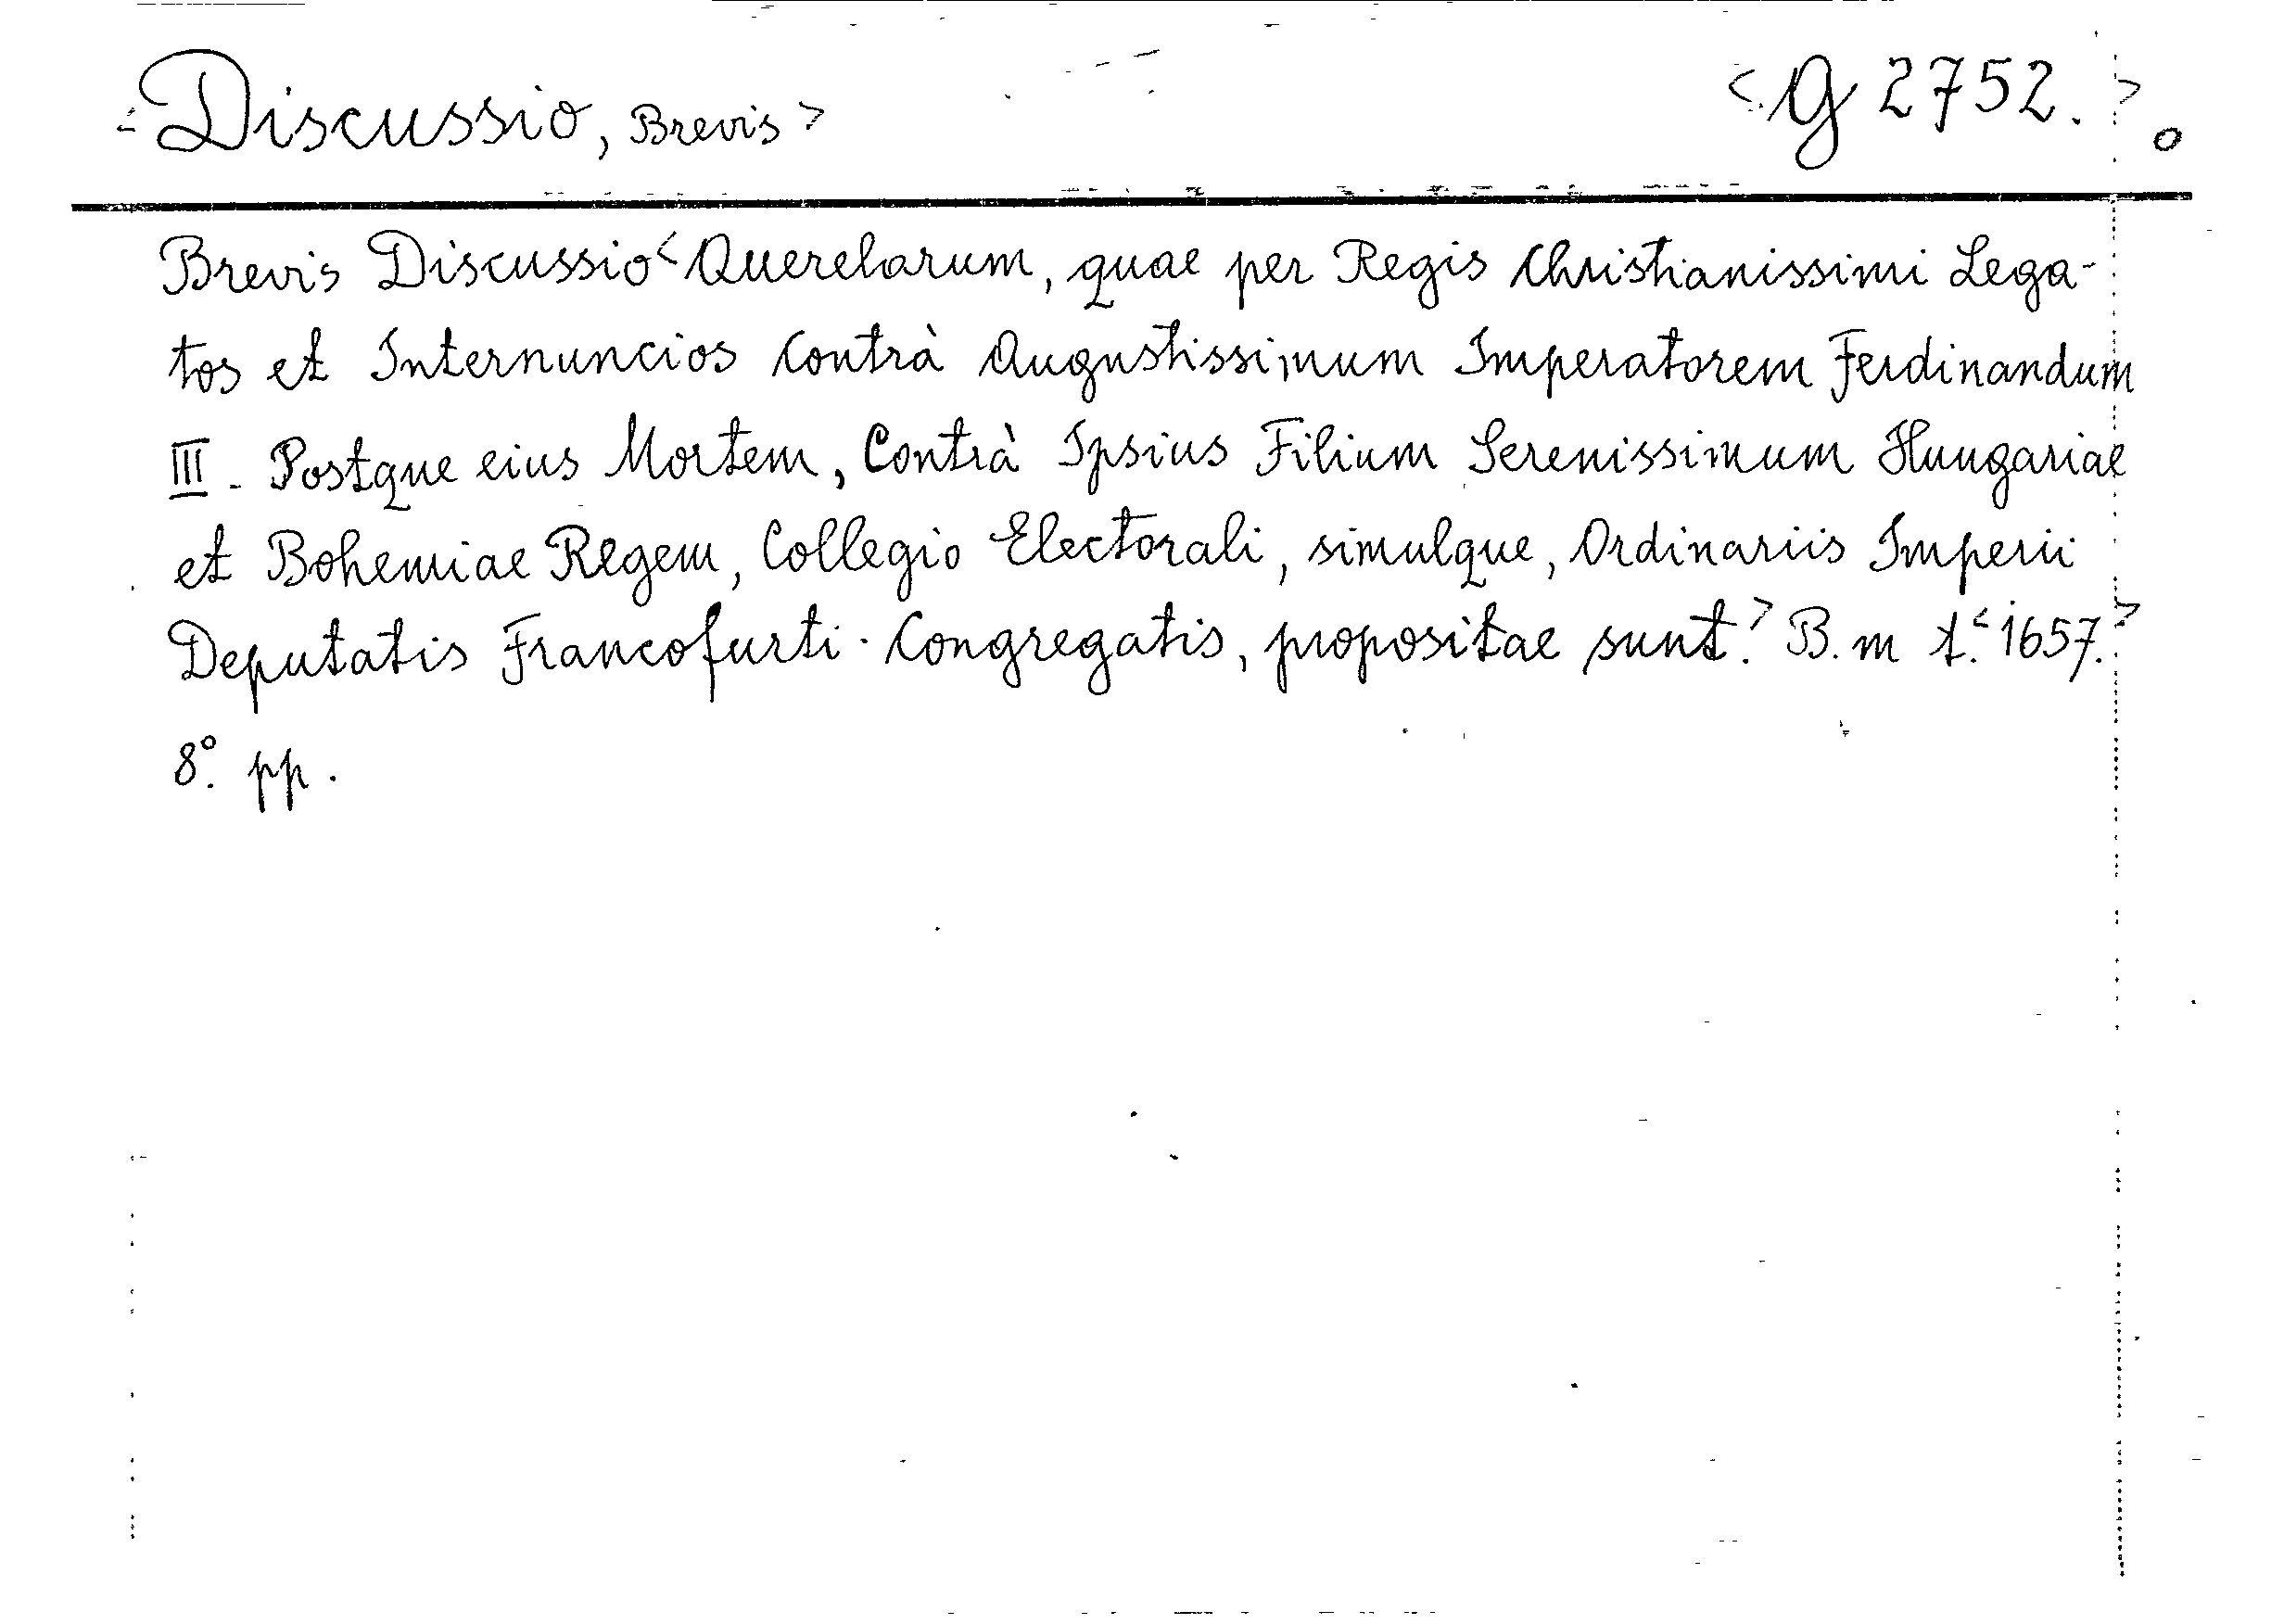 <Discussio, Brevis>
<G 2752.>
Brevis Discussio <Querelarum, quae per Regis Christianissimi Lega-
tos et Internuncios Contrà Augustissimum Imperatorem Ferdinandum
III. Postque eius Mortem, Contrà Ipsius Filium Serenissimum Hungariae
et Bohemiae Regem, Collegio Electorali, simulque, Ordinariis Imperii
Deputatis Francofurti. Congregatis, propositae sunt.> B. m t. <1657.>
8°. pp.